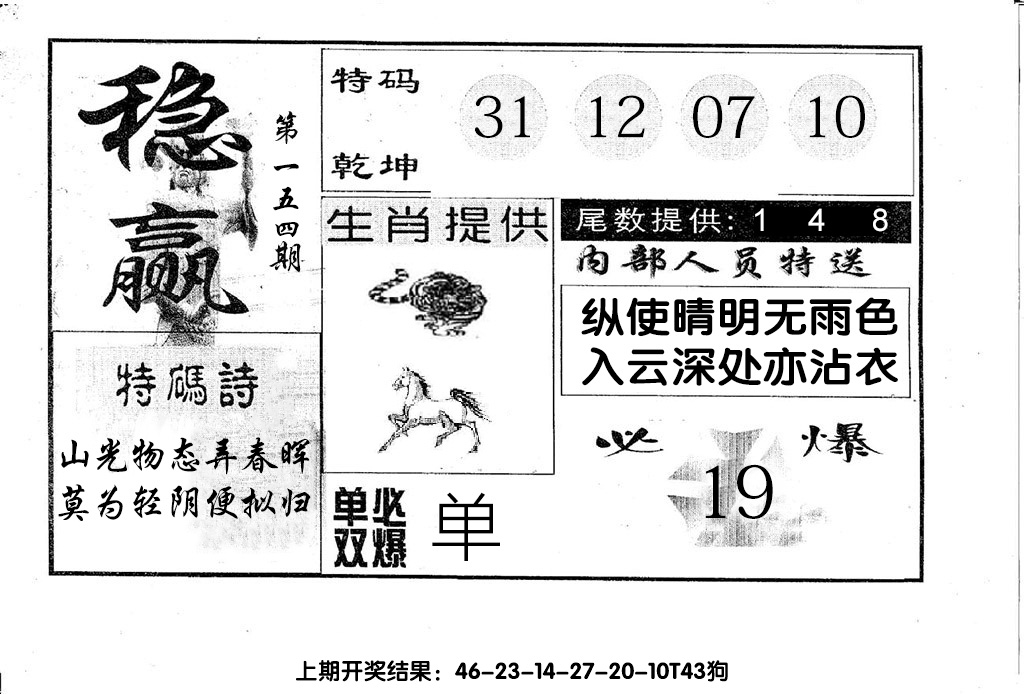 稳赢
第一五四期
特码
乾坤
31 12 07 10
生肖提供
尾数提供: 1 4 8
内部人员特送
纵使晴明无雨色
入云深处亦沾衣
特碼詩
山光物态弄春晖
莫为轻阴便拟归
必爆
19
单双
必爆
单
上期开奖结果：46-23-14-27-20-10T43狗